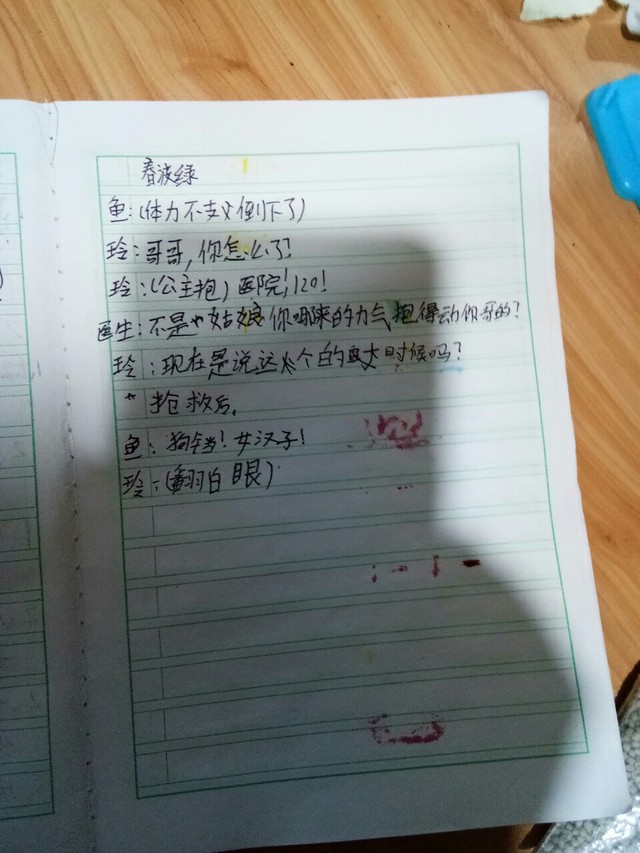 春波绿
鱼:(体力不支倒下了)
玲:哥哥,你怎么了!
玲:(公主抱)医院!120!
医生:不是姑娘你哪来的力气抱得动你哥的?
玲:现在是说这个的时候吗?
* 抢救后.
鱼:狗铃!女汉子!
玲:(翻白眼)